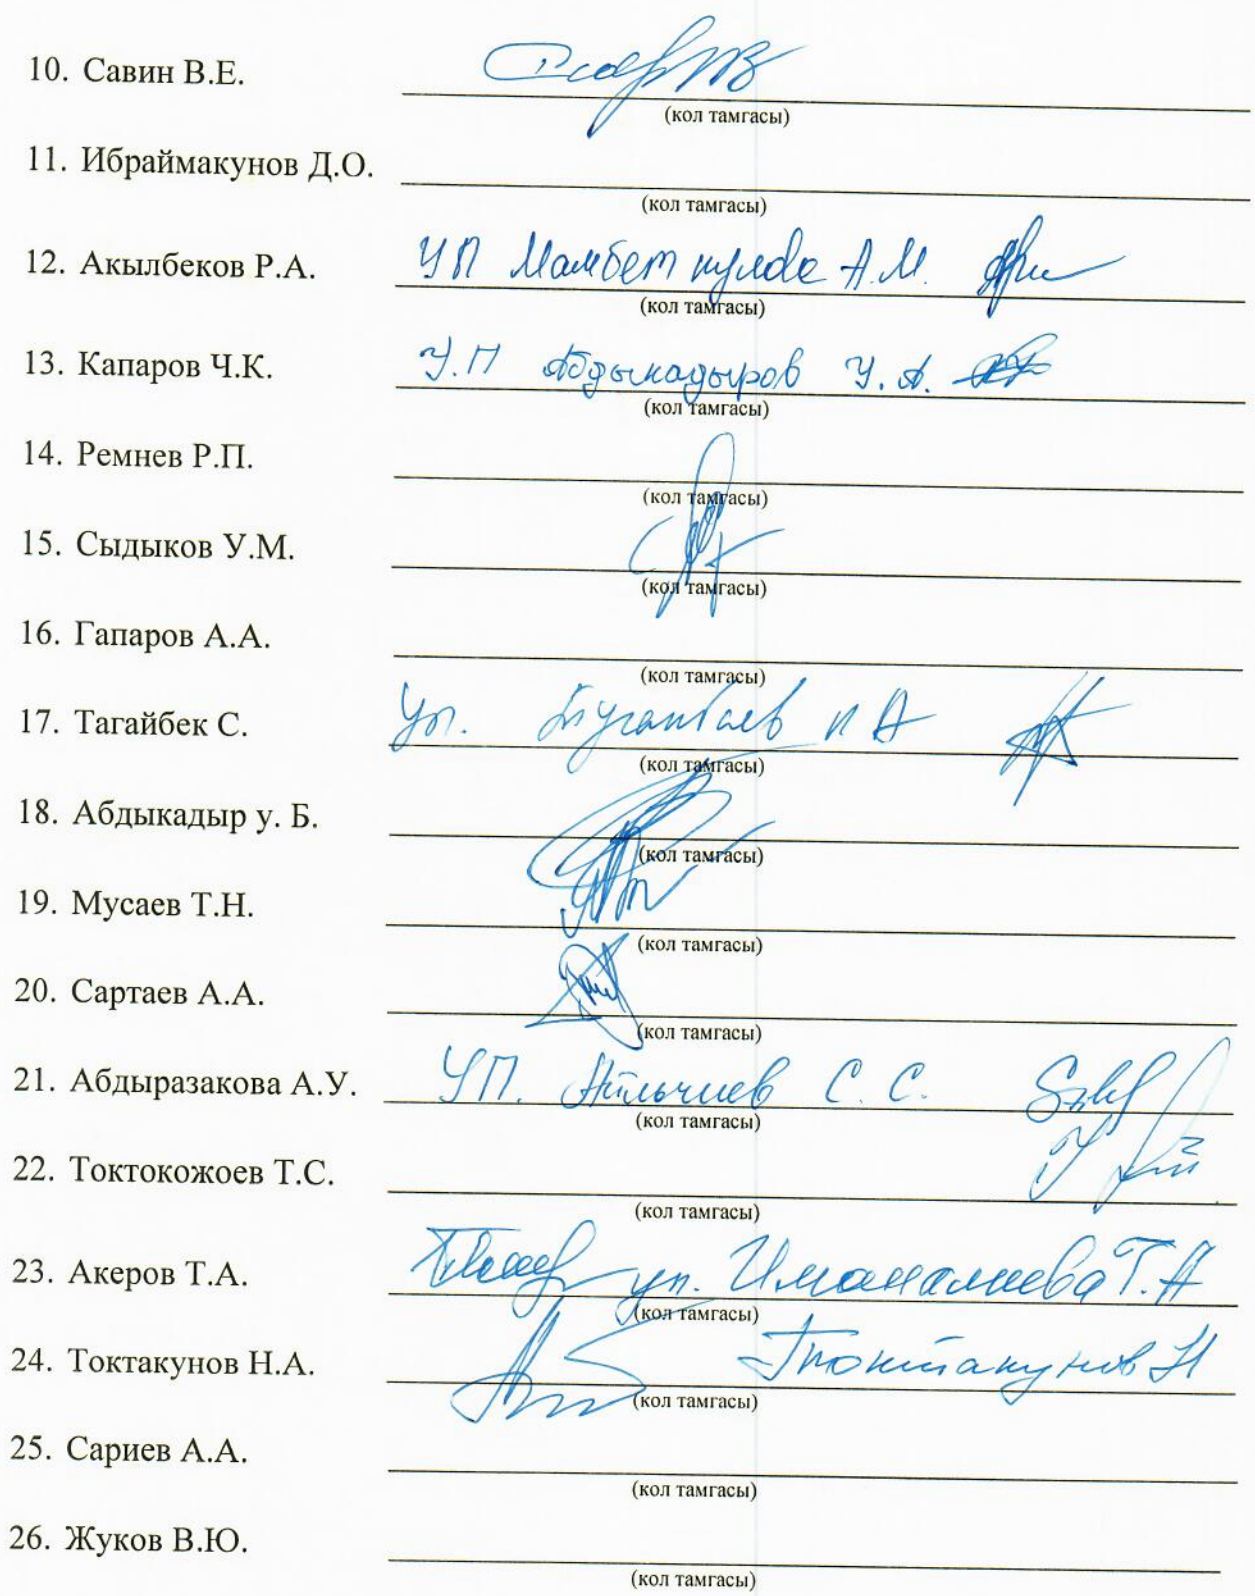 10. Савин В.Е.
(кол тамгасы)
11. Ибраймакунов Д.О.
(кол тамгасы)
12. Акылбеков Р.А. УП Мамбеткулова А.М.
(кол тамгасы)
13. Капаров Ч.К. У.П Абдыкадыров У.А.
(кол тамгасы)
14. Ремнев Р.П.
(кол тамгасы)
15. Сыдыков У.М.
(кол тамгасы)
16. Гапаров А.А.
(кол тамгасы)
17. Тагайбек С. Уп.
(кол тамгасы)
18. Абдыкадыр у. Б.
(кол тамгасы)
19. Мусаев Т.Н.
(кол тамгасы)
20. Сартаев А.А.
(кол тамгасы)
21. Абдыразакова А.У. УП. С. С.
(кол тамгасы)
22. Токтокожоев Т.С.
(кол тамгасы)
23. Акеров Т.А. уп. Иманалиева Т.А
(кол тамгасы)
24. Токтакунов Н.А. Токтакунов Н
(кол тамгасы)
25. Сариев А.А.
(кол тамгасы)
26. Жуков В.Ю.
(кол тамгасы)